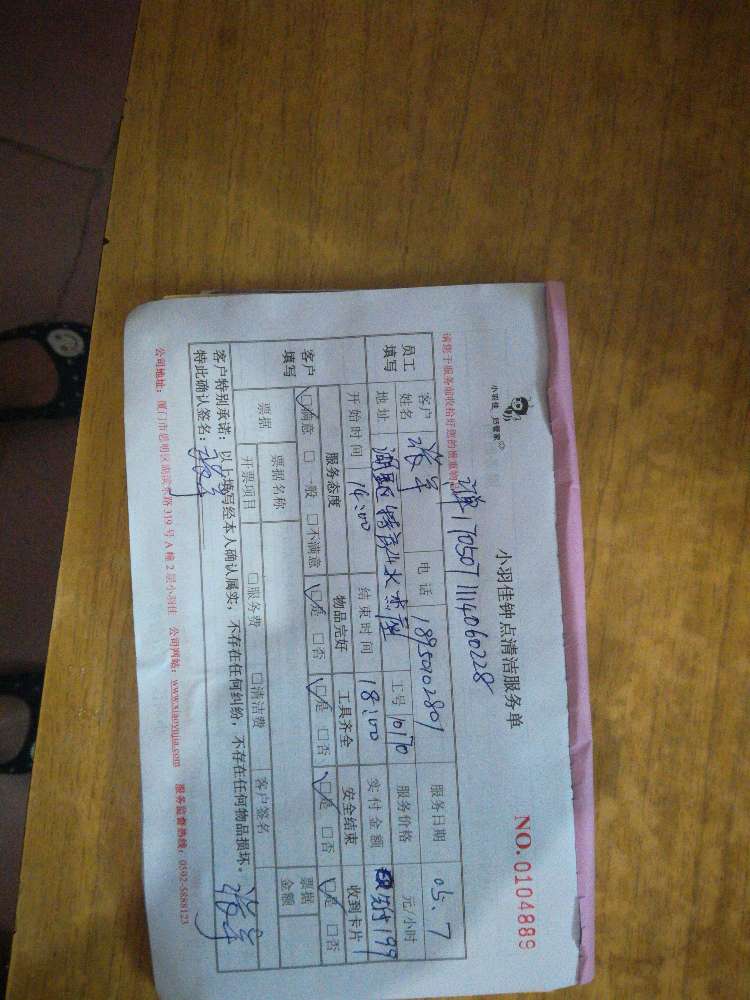 小羽佳 好管家
小羽佳钟点清洁服务单
NO.0104889
请您于服务前收拾好您的贵重物
单1705071114060228
员工填写
客户姓名 张军 电话 18950102801 服务日期 05.7
地址 湖里区 工号 10170 服务价格 元/小时
开始时间 14:00 结束时间 18:00 实付金额 199
客户填写
服务态度 物品完好 工具齐全 安全结束 收到卡片
☑满意 □一般 □不满意 ☑是 □否 ☑是 □否 ☑是 □否 ☑是 □否
票据 票据名称 □服务费 □清洁费 客户签名 票据金额
开票项目
客户特别承诺:以上填写经本人确认属实,不存在任何纠纷,不存在任何物品损坏。
特此确认签名:张军 张军
公司地址:厦门市思明区湖滨北路319号A幢2层小羽佳 公司网站:www.xiaoyujia.com 服务监督热线:0592-5888123